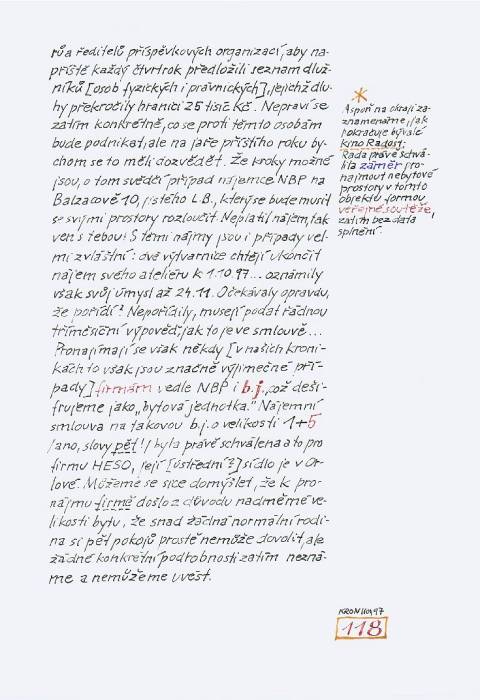 rů a ředitelů příspěvkových organizací, aby na-
příště každý čtvrtrok předložili seznam dluž-
níků [osob fyzických i právnických], jejichž dlu-
hy překročily hranici 25 tisíc Kč. Nepraví se
zatím konkrétně, co se proti těmto osobám
bude podnikat, ale na jaře příštího roku by-
chom se to měli dozvědět. Že kroky možné
jsou, o tom svědčí případ nájemce NBP na
Balzacově 10, jistého L.B., který se bude muset
se svými prostory rozloučit. Neplatil nájem, tak
ven s tebou! S těmi nájmy jsou i případy vel-
mi zvláštní: dvě výtvarnice chtějí ukončit
nájem svého atelieru k 1.10.97... oznámily
však svůj úmysl až 24.11. Očekávaly opravdu,
že pořídí? Nepořídily, musejí podat řádnou
tříměsíční výpověď, jak to je ve smlouvě...
Pronajímají se však někdy [v našich kroni-
kách to však jsou značně výjimečné pří-
pady] firmám vedle NBP i b.j., což deši-
frujeme jako „bytová jednotka.“ Nájemní
smlouva na takovou b.j. o velikosti 1+5
/ano, slovy pět!/ byla právě schválena a to pro
firmu HESO, její [ústřední?] sídlo je v Or-
lové. Můžeme se sice domýšlet, že k pro-
nájmu firmě došlo z důvodu nadměrné ve-
likosti bytu, že snad žádná normální rodi-
na si pět pokojů prostě nemůže dovolit, ale
žádné konkrétní podrobnosti zatím nezná-
me a nemůžeme uvést.
*
Aspoň na okraji za-
znamenáme, jak
pokračuje bývalé
kino Radost:
Rada právě schvá-
lila záměr pro-
najmout nebytové
prostory v tomto
objektu formou
veřejné soutěže,
zatím bez data
splnění.
KRON 1997
118